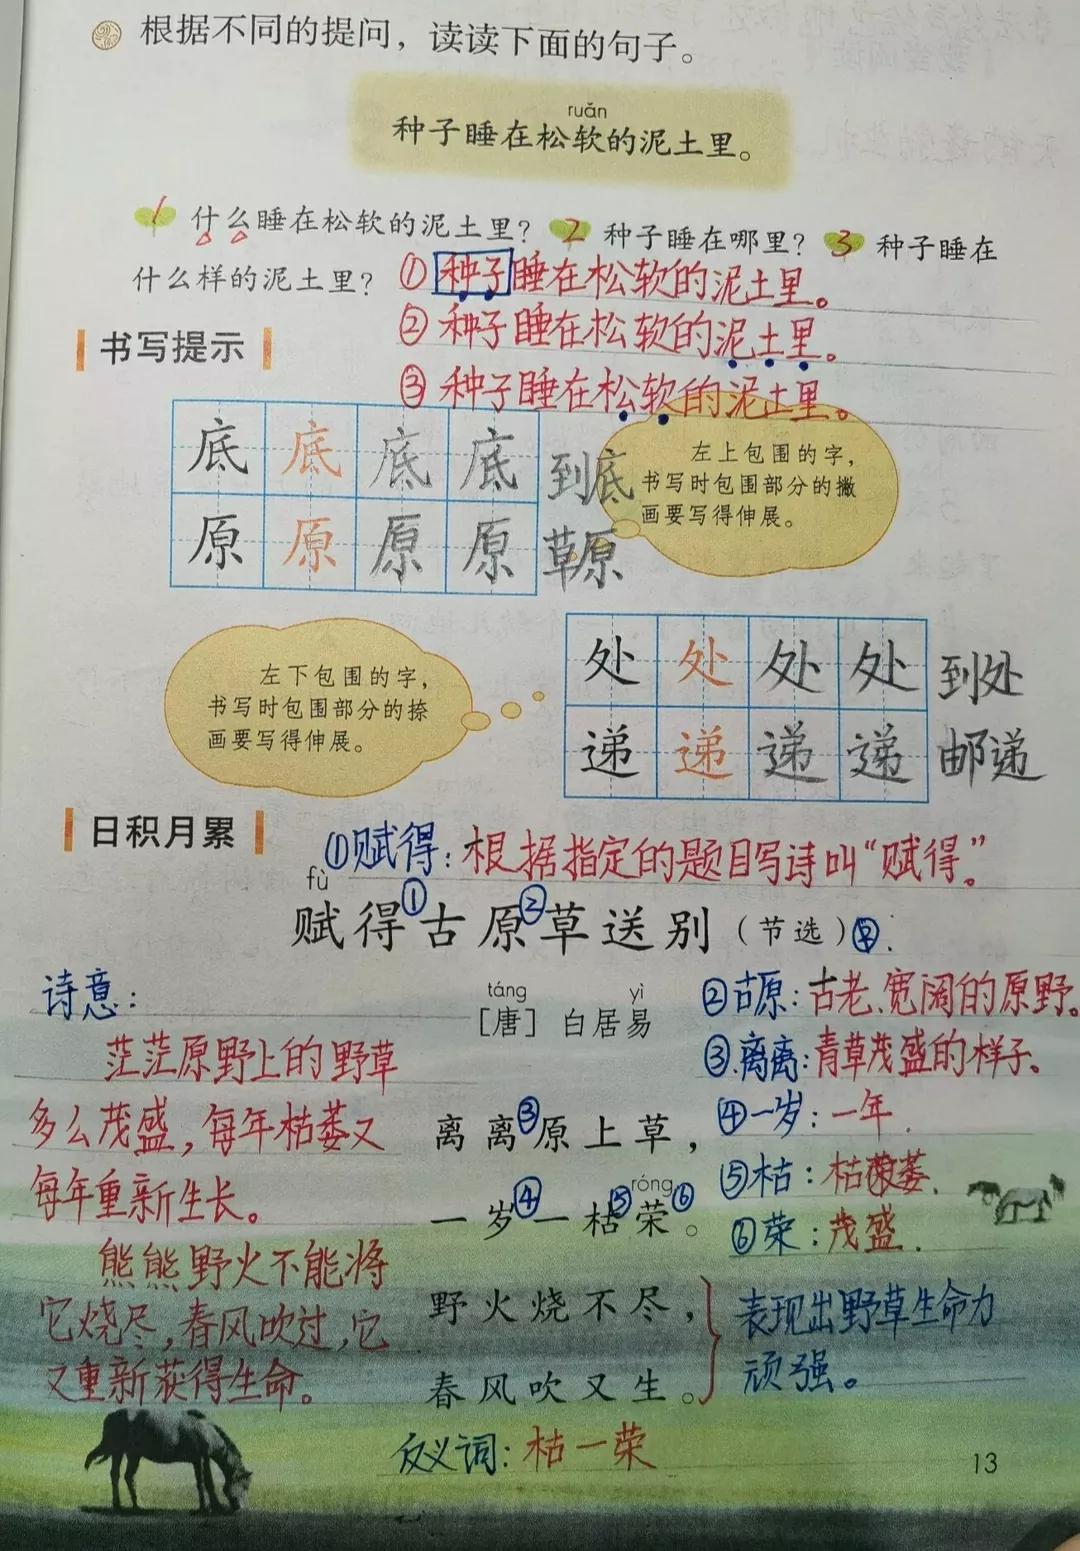 根据不同的提问，读读下面的句子。
ruǎn
种子睡在松软的泥土里。
1 什么睡在松软的泥土里？ 2 种子睡在哪里？ 3 种子睡在
什么样的泥土里？ ①种子睡在松软的泥土里。
②种子睡在松软的泥土里。
③种子睡在松软的泥土里。
书写提示
底 底 底 底 到底
原 原 原 原 草原
左上包围的字，
书写时包围部分的撇
画要写得伸展。
处 处 处 处 到处
递 递 递 递 邮递
左下包围的字，
书写时包围部分的捺
画要写得伸展。
日积月累
①赋得：根据指定的题目写诗叫“赋得”。
fù
赋得①古原②草送别（节选）
táng yì
[唐] 白居易
离离③原上草，
róng
一岁④一枯⑤荣⑥。
野火烧不尽，
春风吹又生。
②古原：古老、宽阔的原野。
③离离：青草茂盛的样子。
④一岁：一年.
⑤枯：枯萎.
⑥荣：茂盛.
表现出野草生命力
顽强。
诗意：
茫茫原野上的野草
多么茂盛，每年枯萎又
每年重新生长。
熊熊野火不能将
它烧尽，春风吹过，它
又重新获得生命。
反义词：枯一荣
13